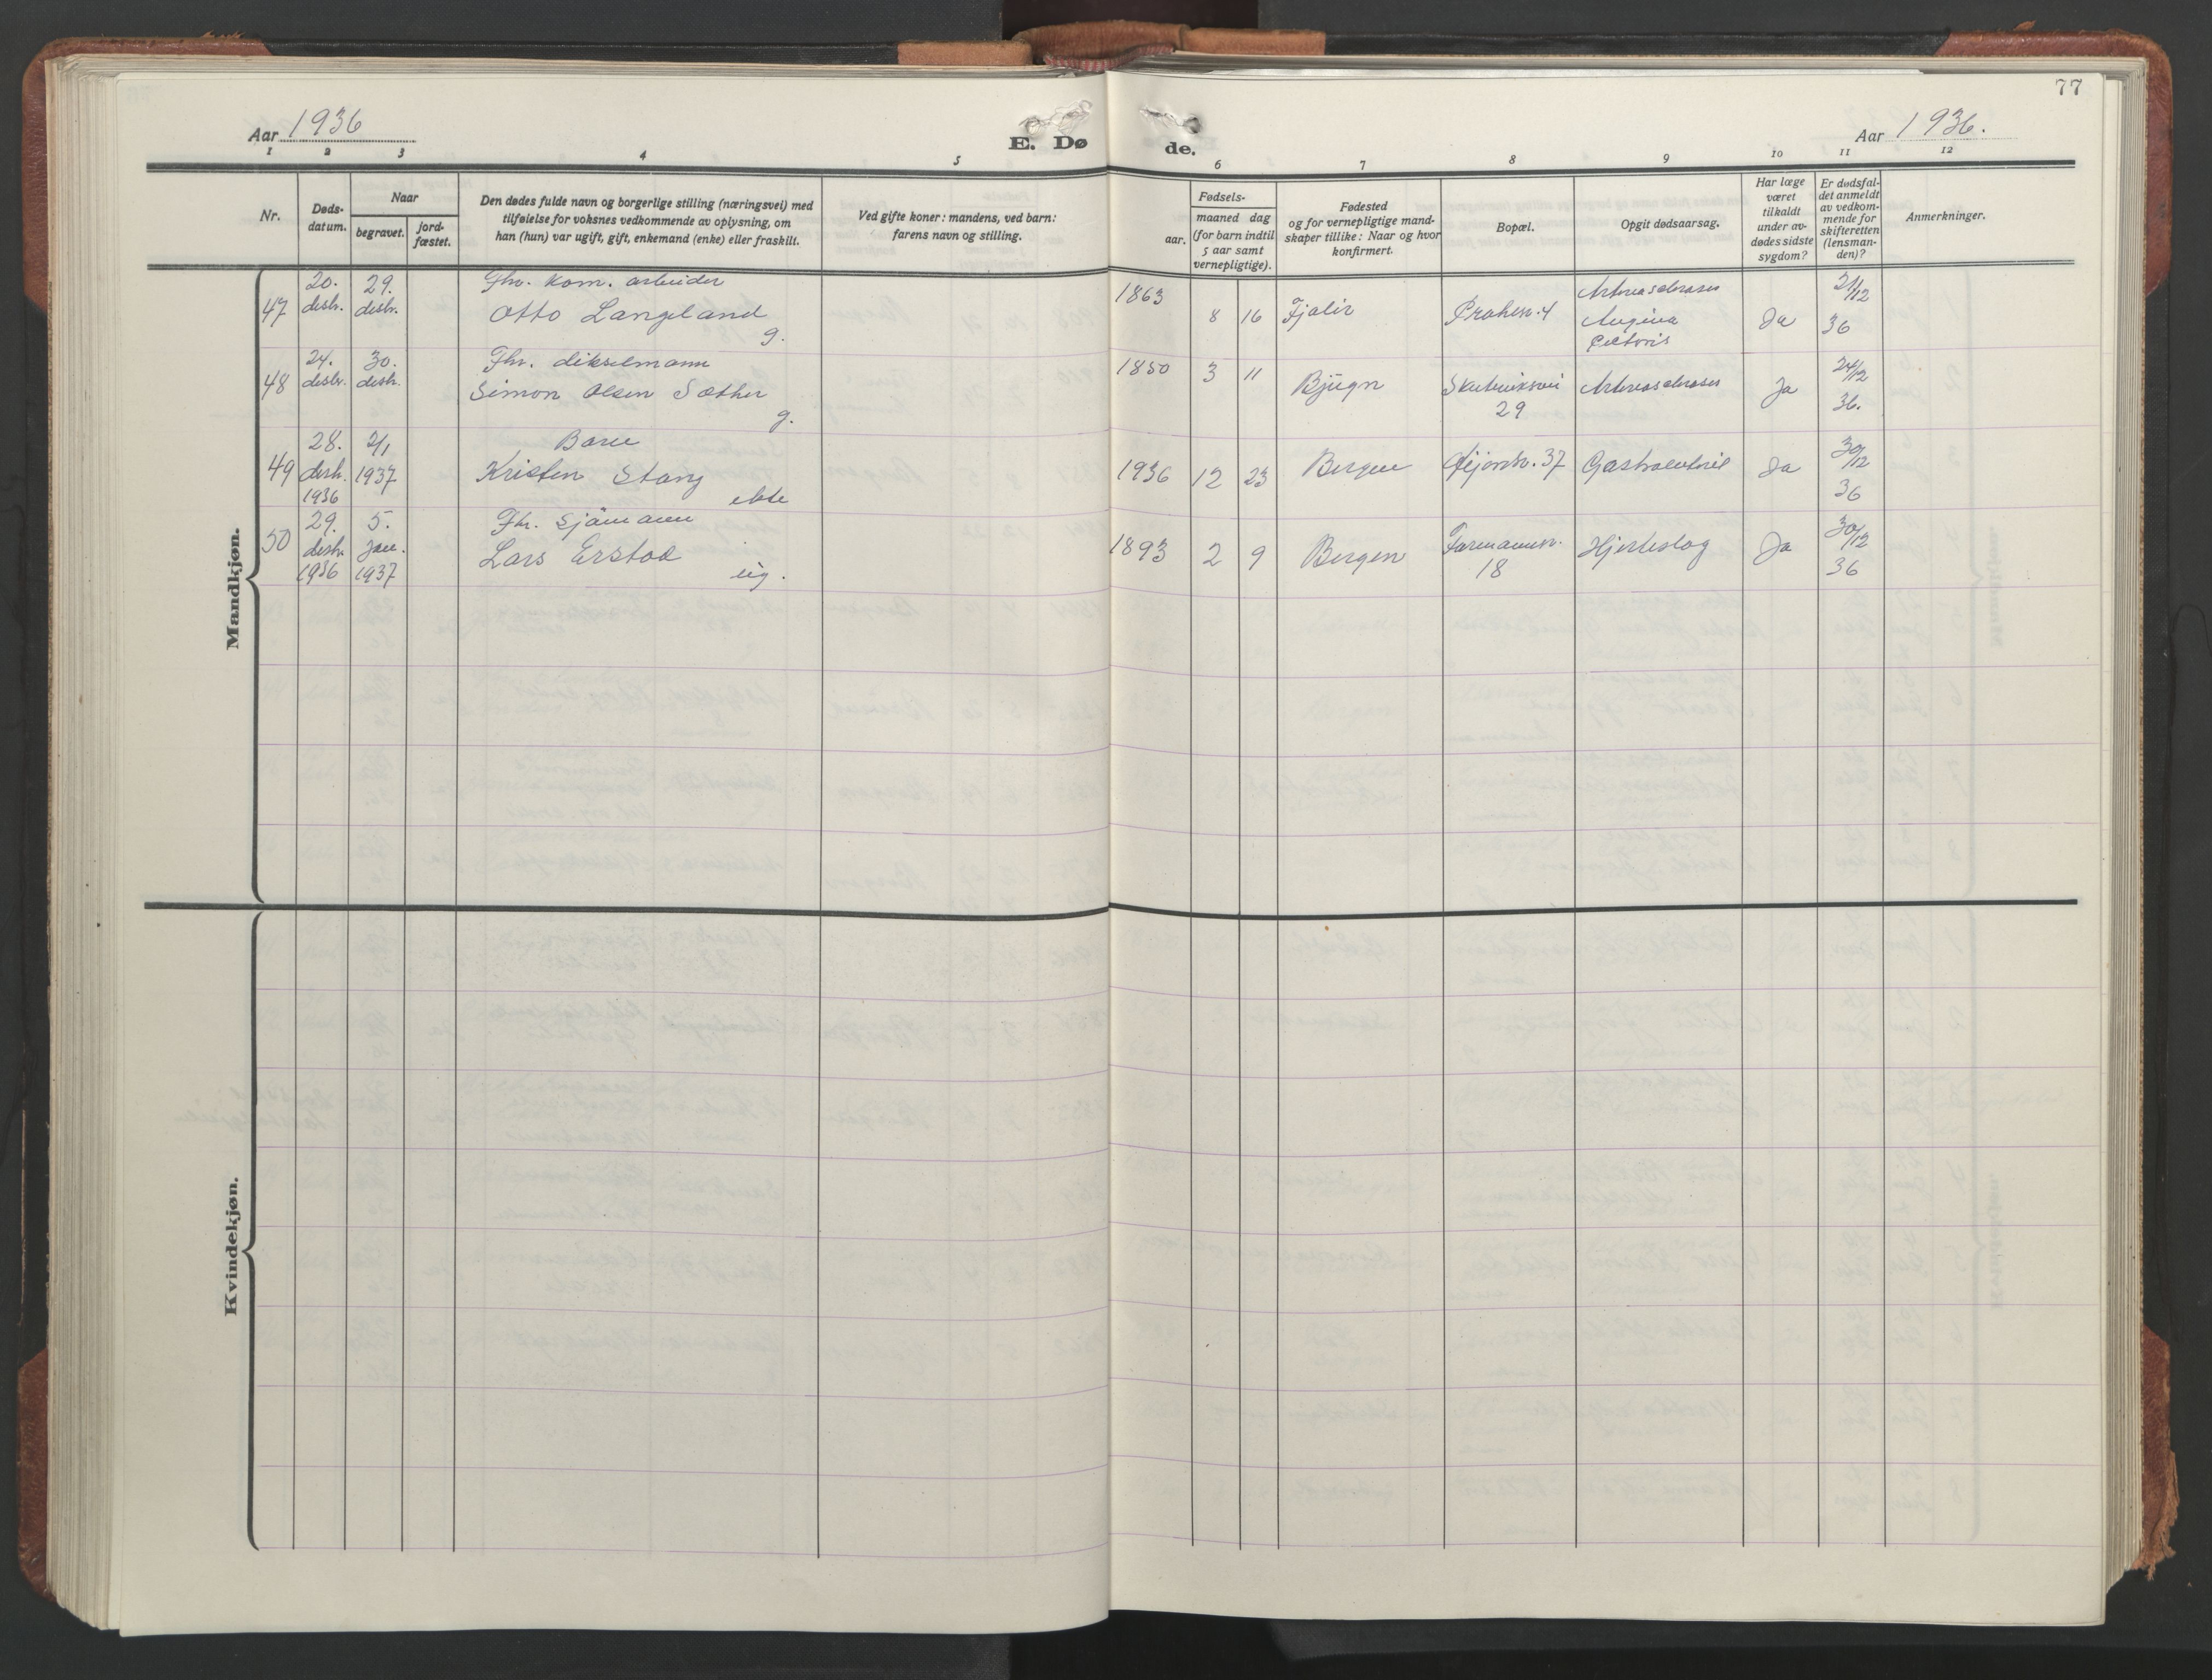 77
Aar 1936
E. Døde.
Aar 1936.
1 2 3 4 5 6 7 8 9 10 11 12
Nr.
Døds-
datum.
Naar
begravet.
jord-
fæstet.
Den dødes fulde navn og borgerlige stilling (næringsvei) med
tilføielse for voksnes vedkommende av oplysning, om
han (hun) var ugift, gift, enkemand (enke) eller fraskilt.
Ved gifte koner: mandens, ved barn:
farens navn og stilling.
Fødsels-
aar.
maaned dag
(for barn indtil
5 aar samt
vernepligtige).
Fødested
og for vernepligtige mand-
skaper tillike: Naar og hvor
konfirmert.
Bopæl.
Opgit dødsaarsag.
Har læge
været
tilkaldt
under av-
dødes sidste
sygdom?
Er dødsfal-
det anmeldt
av vedkom-
mende for
skifteretten
(lensman-
den)?
Anmerkninger.
Mandkjøn.
47
20.
desbr.
29.
desbr.
Fhv. kom. arbeider
Otto Langeland
g.
1863
8
16
Fjalir
Angina
Pectoris
Ja
21/12
36
48
24.
desbr.
30.
desbr.
Fhv.
Simon Olsen Sæther
g.
1850
3
11
Bjugn
Skuteviksvei
29
Ja
24/12
36.
49
28.
desbr.
1936
2/1
1937
Barn
Kristen Stang
ekte
1936
12
23
Bergen
37
Ja
30/12
36
50
29.
desbr.
1936
5.
Jan.
1937
Fhv. Sjømann
Lars Erstad
ug.
1893
2
9
Bergen
18
Hjerteslag
Ja
30/12
36
Kvindekjøn.